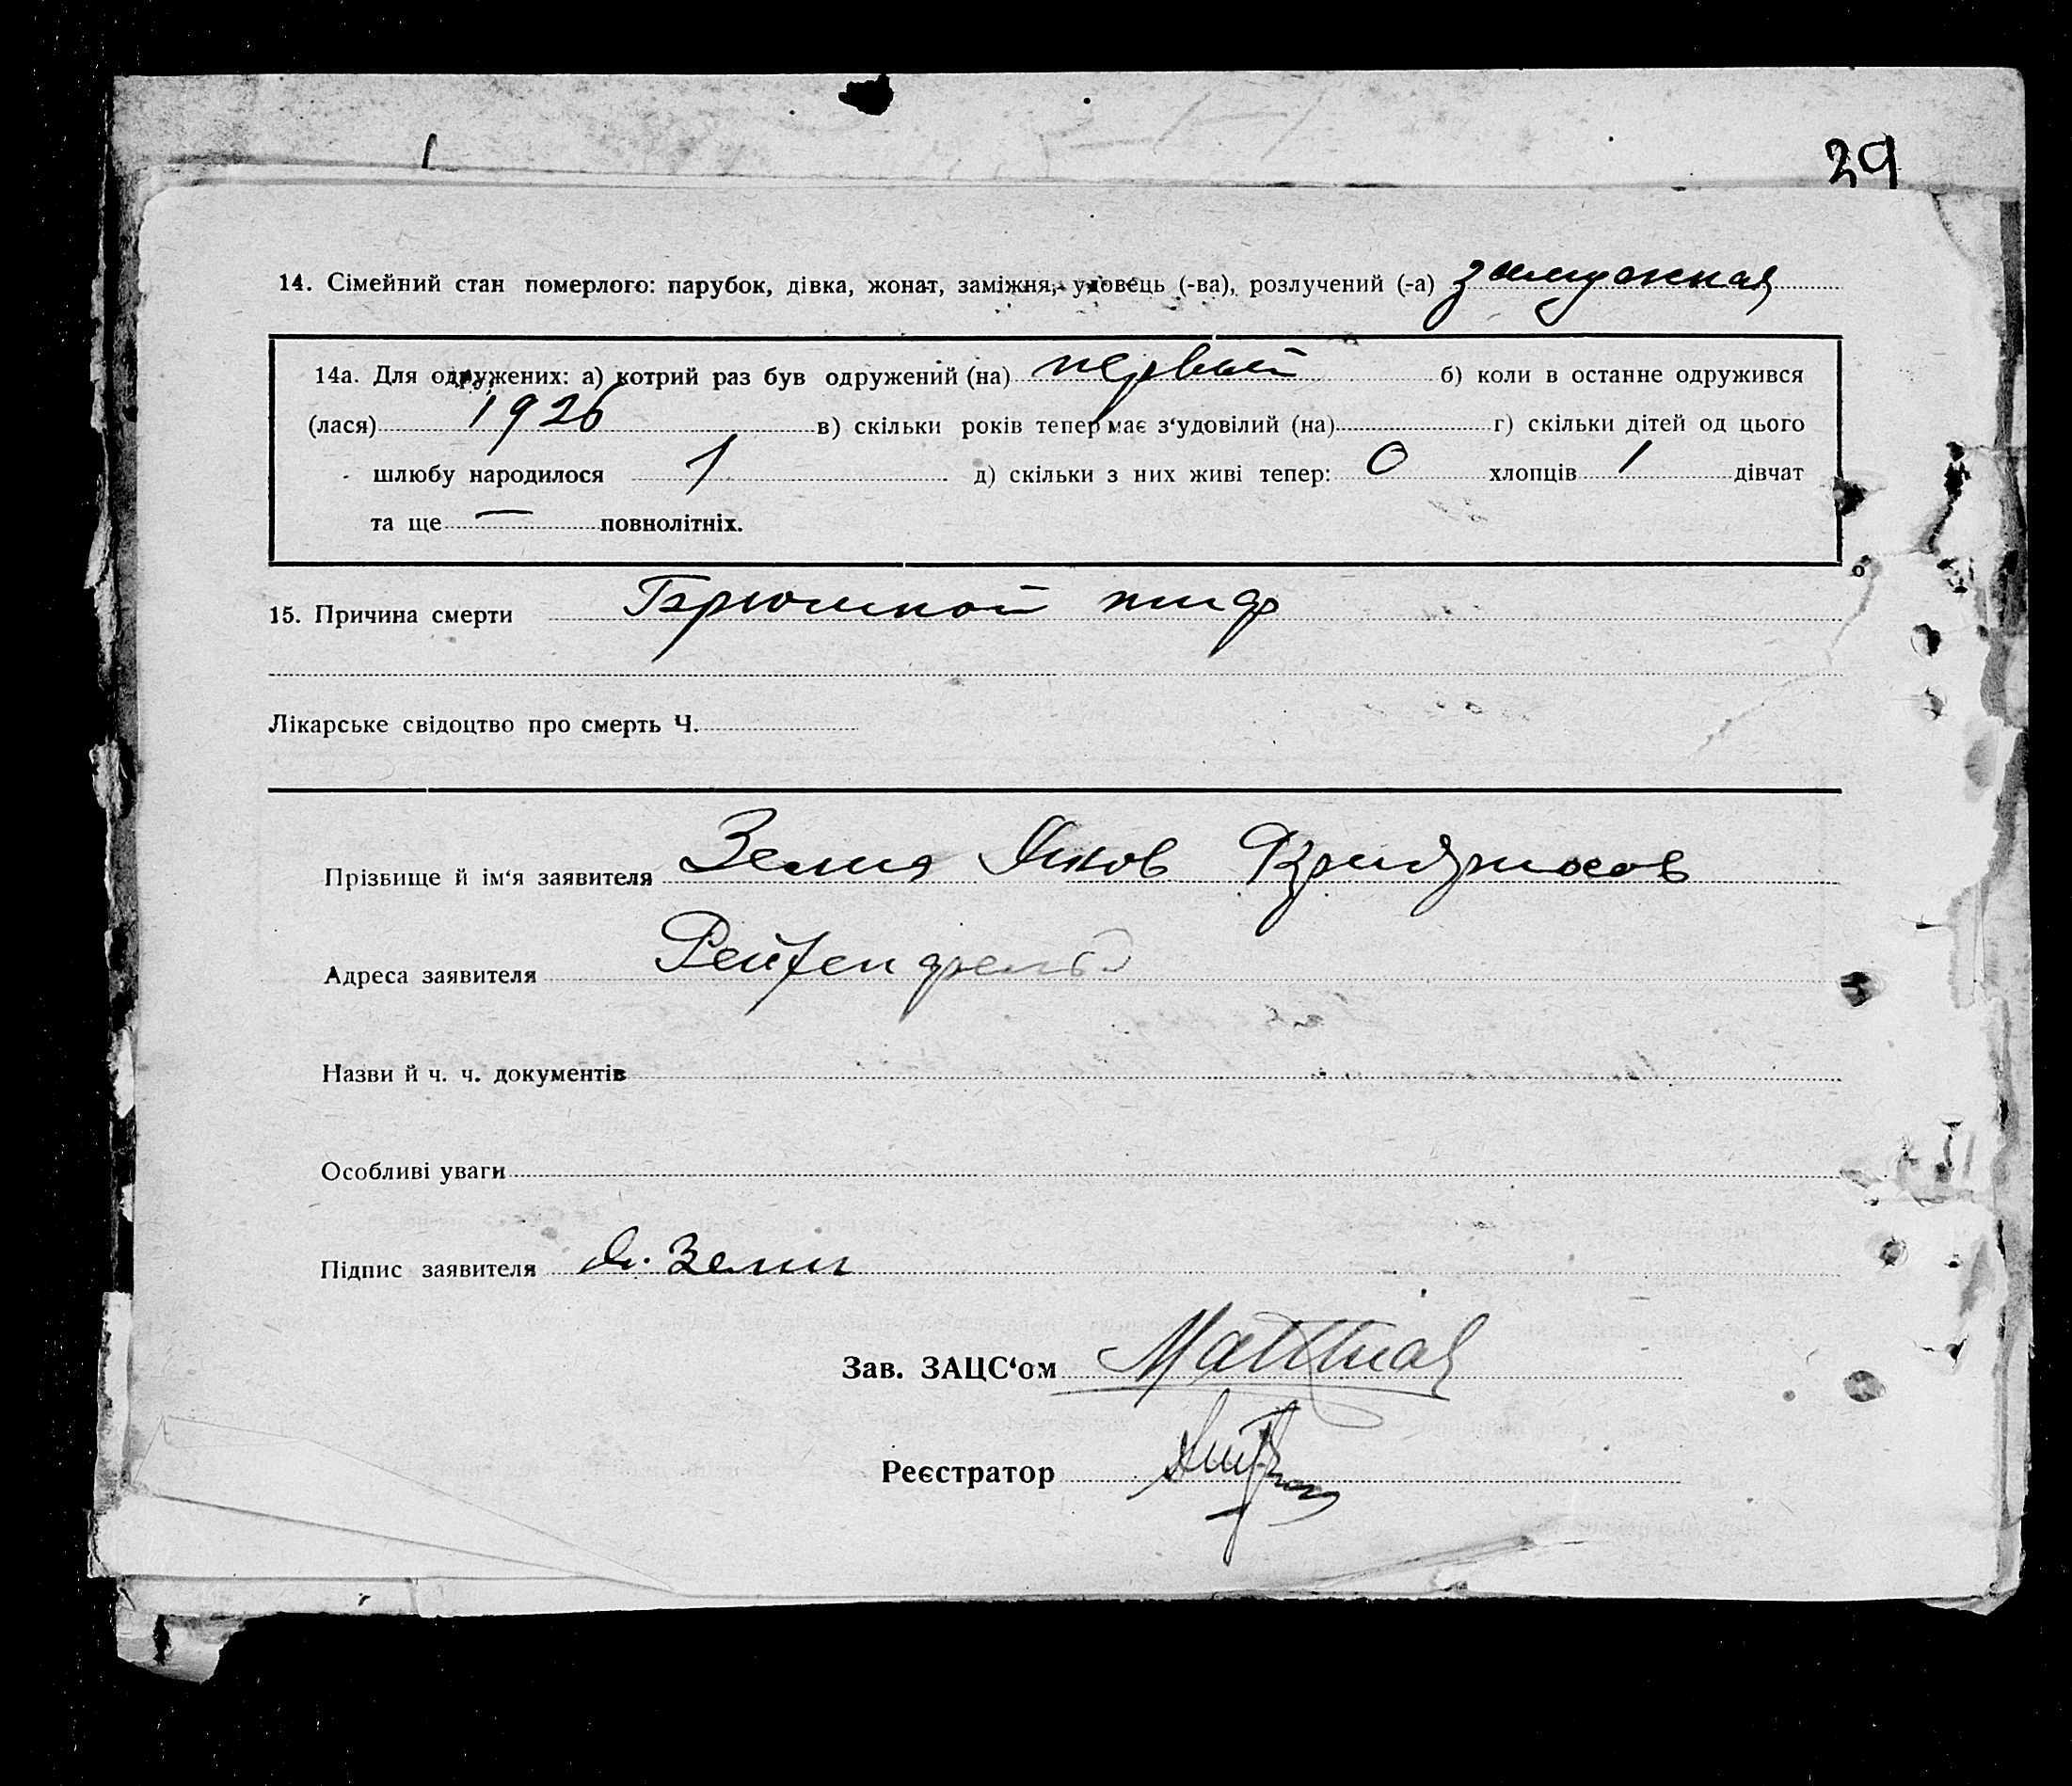 29
14. Сімейний стан померлого: парубок, дівка, жонат, заміжня, удовець (-ва), розлучений (-а) замужная
14а. Для одружених: а) котрий раз був одружений (на) первый б) коли в останне одружився
(лася) 1926 в) скільки років тепер має з‘удовілий (на) г) скільки дітей од цього
шлюбу народилося 1 д) скільки з них живі тепер: 0 хлопців 1 дівчат
та ще — повнолітніх.
15. Причина смерти Брюшной тиф
Лікарське свідоцтво про смерть Ч.
Прізвище й ім‘я заявителя Яков
Адреса заявителя
Назви й ч. ч. документів
Особливі уваги
Підпис заявителя
Зав. ЗАЦС‘ом
Реєстратор